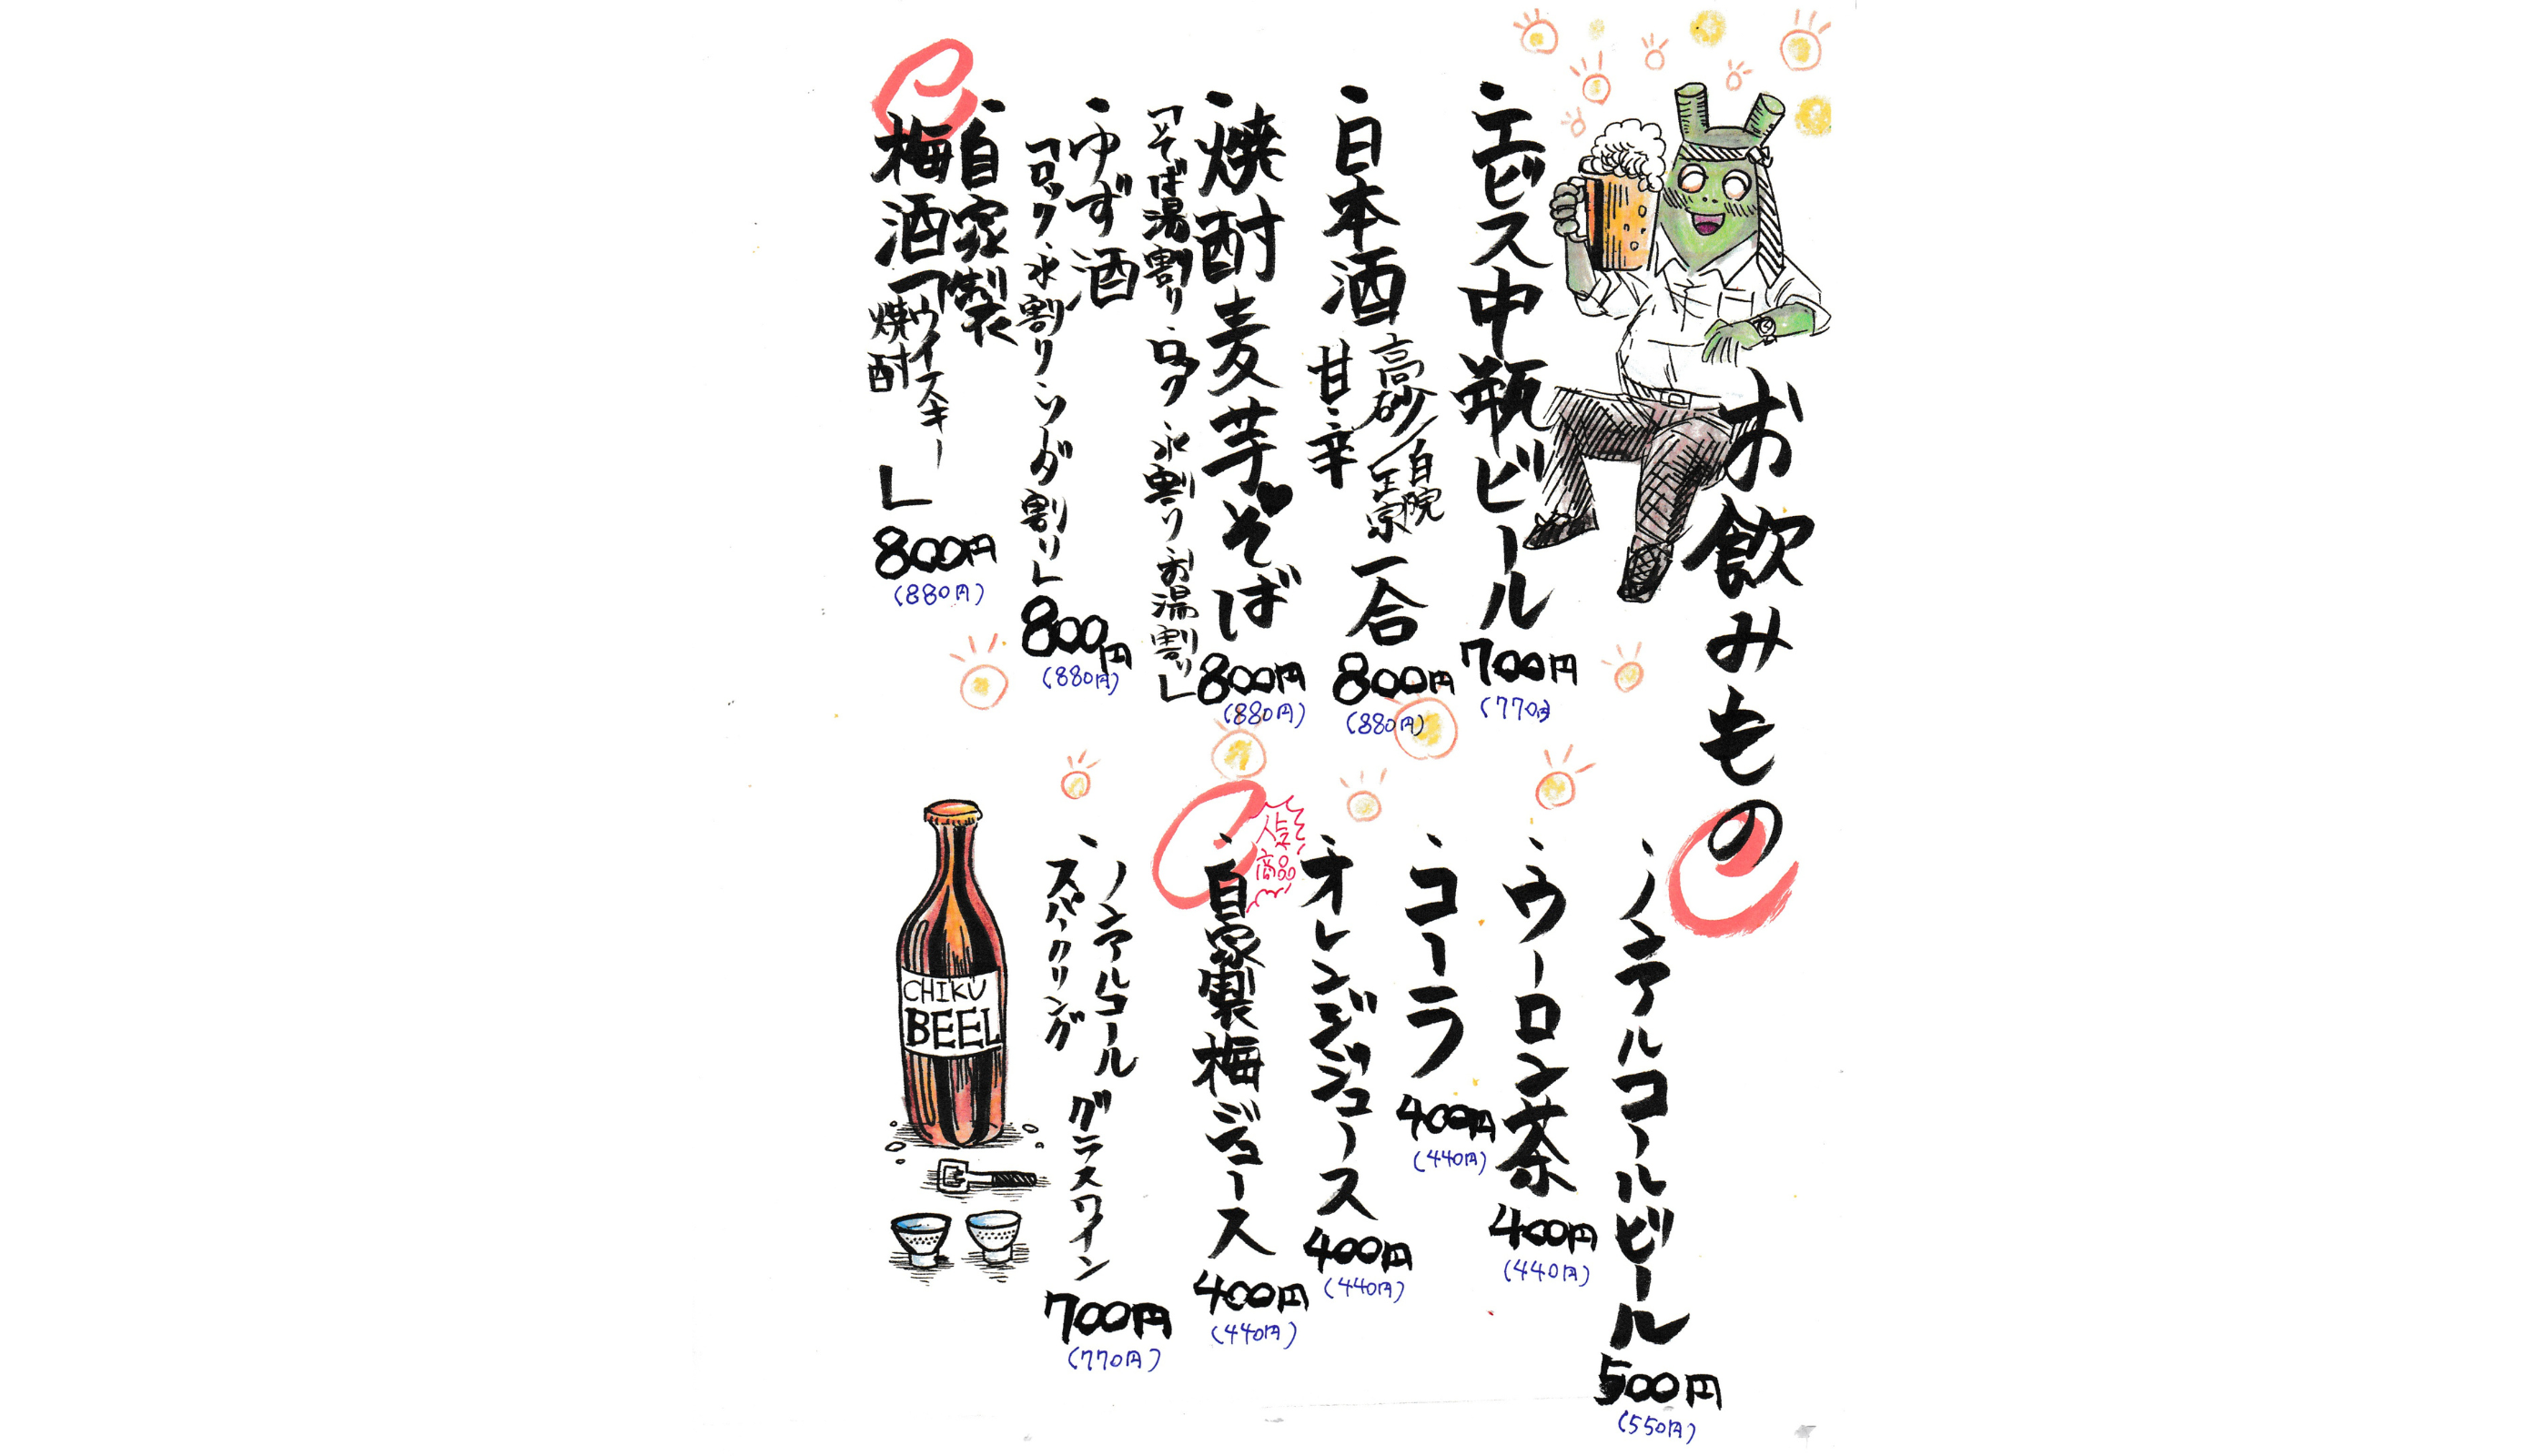 お飲みもの
・エビス中瓶ビール 700円
(770円)
・日本酒 高砂/白院正宗 甘・辛 一合 800円
(880円)
・焼酎 麦 芋 そば 800円
(880円)
「そば湯割り・ロック・水割り・お湯割り」
・ゆず酒
「ロック・水割り・ソーダ割り」 800円
(880円)
・自家製
梅酒「ウイスキー
焼酎」 800円
(880円)
・ノンアルコールビール 500円
(550円)
・ウーロン茶 400円
(440円)
・コーラ 400円
(440円)
・オレンジジュース 400円
(440円)
人気商品
・自家製梅ジュース 400円
(440円)
・ノンアルコール
スパークリング グラスワイン 700円
(770円)
CHIKU
BEEL